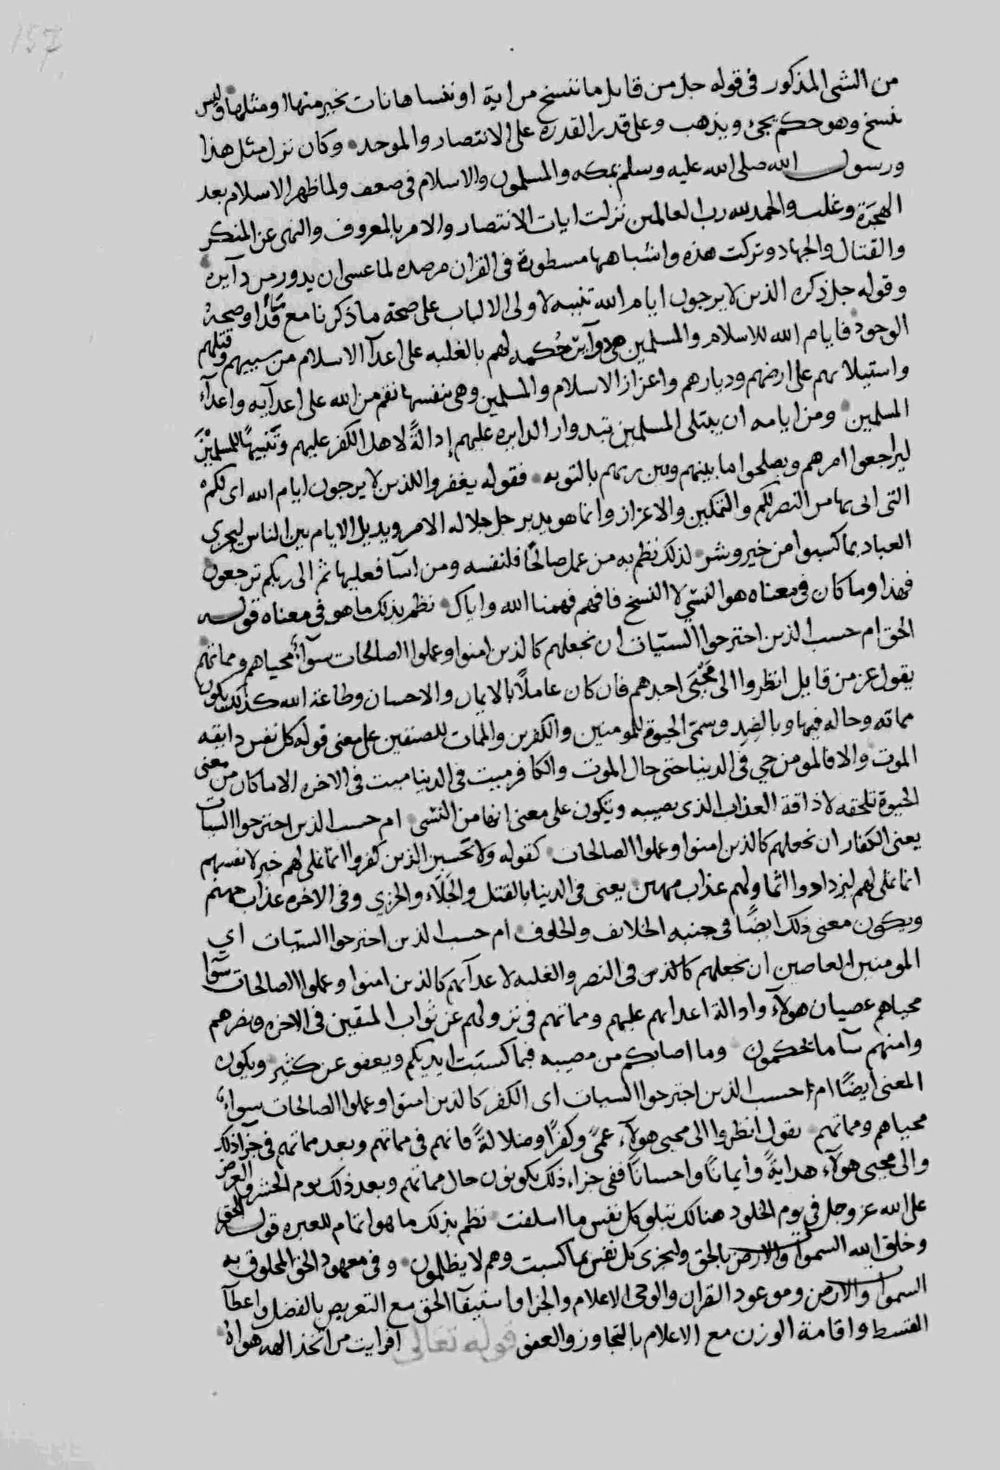 157
من الشى المذكور فى قوله جل من قايل ما ننسخ من اية او ننساها نات بخير منها او مثلها وليس
بنسخ وهو حكم يجئ ويذهب وعلى قدر القدرة على الانتصار والموجد وكان نزل مثل هذا
ورسول الله صلى الله عليه وسلم بمكه والمسلمون والاسلام فى ضعف ولما ظهر الاسلام بعد
الهجرة وغلب والحمد لله رب العالمين نزلت ايات الانتصار والامر بالمعروف والنهى عن المنكر
والقتال والجهاد وتركت هذه واشباهها مسطورة فى القران مرصده لما عسى ان يدور من دآيرة
وقوله جل ذكره الذين لا يرجون ايام الله تنبيه لاولى الالباب على صحة ما ذكرنا مع وصحة
الوجود فايام الله للاسلام والمسلمين هى دوآير حُكمه لهم بالغلبه على اعدآ الاسلام من سبيهم وقتلهم
واستيلائهم على ارضهم وديارهم واعزاز الاسلام والمسلمين وهى نفسها نقم من الله على اعدآيه واعدآء
المسلمين ومن ايامه ان يبتلى المسلمين بتدوار الدايره عليهم إدالةً لاهل الكفر عليهم وتنبيهًا للمسلمين
ليراجعوا امرهم ويصلحوا ما بينهم وبين ربهم بالتوبه فقوله يغفروا للذين لا يرجون ايام الله اى لكم
التى اتى بها من النصر لكم والتمكين والاعزاز وانما هو يدبر جل جلاله الامر ويديل الايام بين الناس ليجزى
العباد بما كسبوا من خير وشر لذلك نظم به من عمل صالحًا فلنفسه ومن اسآ فعليها ثم الى ربكم ترجعون
فهذا وما كان فى معناه هو النسئ لا النسخ فافهم فهمنا الله واياك نظم بذلك ما هو فى معناه قوله
الحق ام حسب الذين اجترحوا السيّات ان نجعلهم كالذين امنوا وعملوا الصالحات سوآءً محياهم ومماتهم
يقول عز من قايل انظروا الى مَحْيَى احدهم فان كان عاملاً بالايمان والاحسان وطاعة الله كذلك يكون
مماته وحاله فيها وبالضد وسمّى الحيوة للمومنين والكفرين والممات للصنفين على معنى قوله كل نفس ذايقه
الموت والا فالمومن حي فى الدنيا حتى حال الموت والكافر ميت فى الدنيا ميت فى الاخره الا ما كان من معنى
الحيوة تلحقه لاذاقة العذاب الذى يصيبه ويكون على معنى انها من النسئ ام حسب الذين اجترحوا السيات
يعنى الكفار ان نجعلهم كالذين امنوا وعملوا الصالحات كقوله ولا تحسبن الذين كفروا انما نملى لهم خير لانفسهم
انما نملى لهم ليزدادوا اثما ولهم عذاب مهين يعنى فى الدنيا بالقتل والجَلآء والخزي وفى الاخره عذاب جهنم
ويكون معنى ذلك ايضًا فى جنبه الخلايف والخلوف ام حسب الذين اجترحوا السيات اي
المومنين العاصين ان نجعلهم كالذين فى النصر والغلبه لاعدآئهم كالذين امنوا وعملوا الصالحات سَوآ
محياهم عصيان هولآء وادالة اعدائهم عليهم ومماتهم فى نزولهم عن ثواب المتقين فى الاخره ونصرهم
وامنهم سآ ما يحكمون وما اصابكم من مصيبه فبما كسبت ايديكم ويعفو عن كثير ويكون
المعنى ايضًا ام حسب الذين اجترحوا السيات اى الكفر كالذين امنوا وعملوا الصالحات سوآءً
محياهم ومماتهم يقول انظروا الى محيى هولآء عمىً وكفرًا وضلالةً فانهم فى مماتهم وبعد مماتهم فى جزآ ذلك
والى محيى هولآء هدايةً وأيمانًا واحسانًا ففى جزاء ذلك يكونون حال مماتهم وبعد ذلك يوم الحشر والعرض
على الله عز وجل فى يوم الخلود هنالك تبلو كل نفس ما اسلفت نظم بذلك ما هو اتمام للعبره قوله الحق
وخلق الله السموات والارض بالحق ولتجزى كل نفس بما كسبت وهم لا يظلمون وفى معهود الحق المخلوق به
السموات والارض وموعود القران والوحى الاعلام والجزا واستيفآ الحق مع التعريض بالفضل واعطآء
القسط واقامة الوزن مع الاعلام بالتجاوز والعفو قوله تعالى افرايت من اتخذ الهه هواهُ